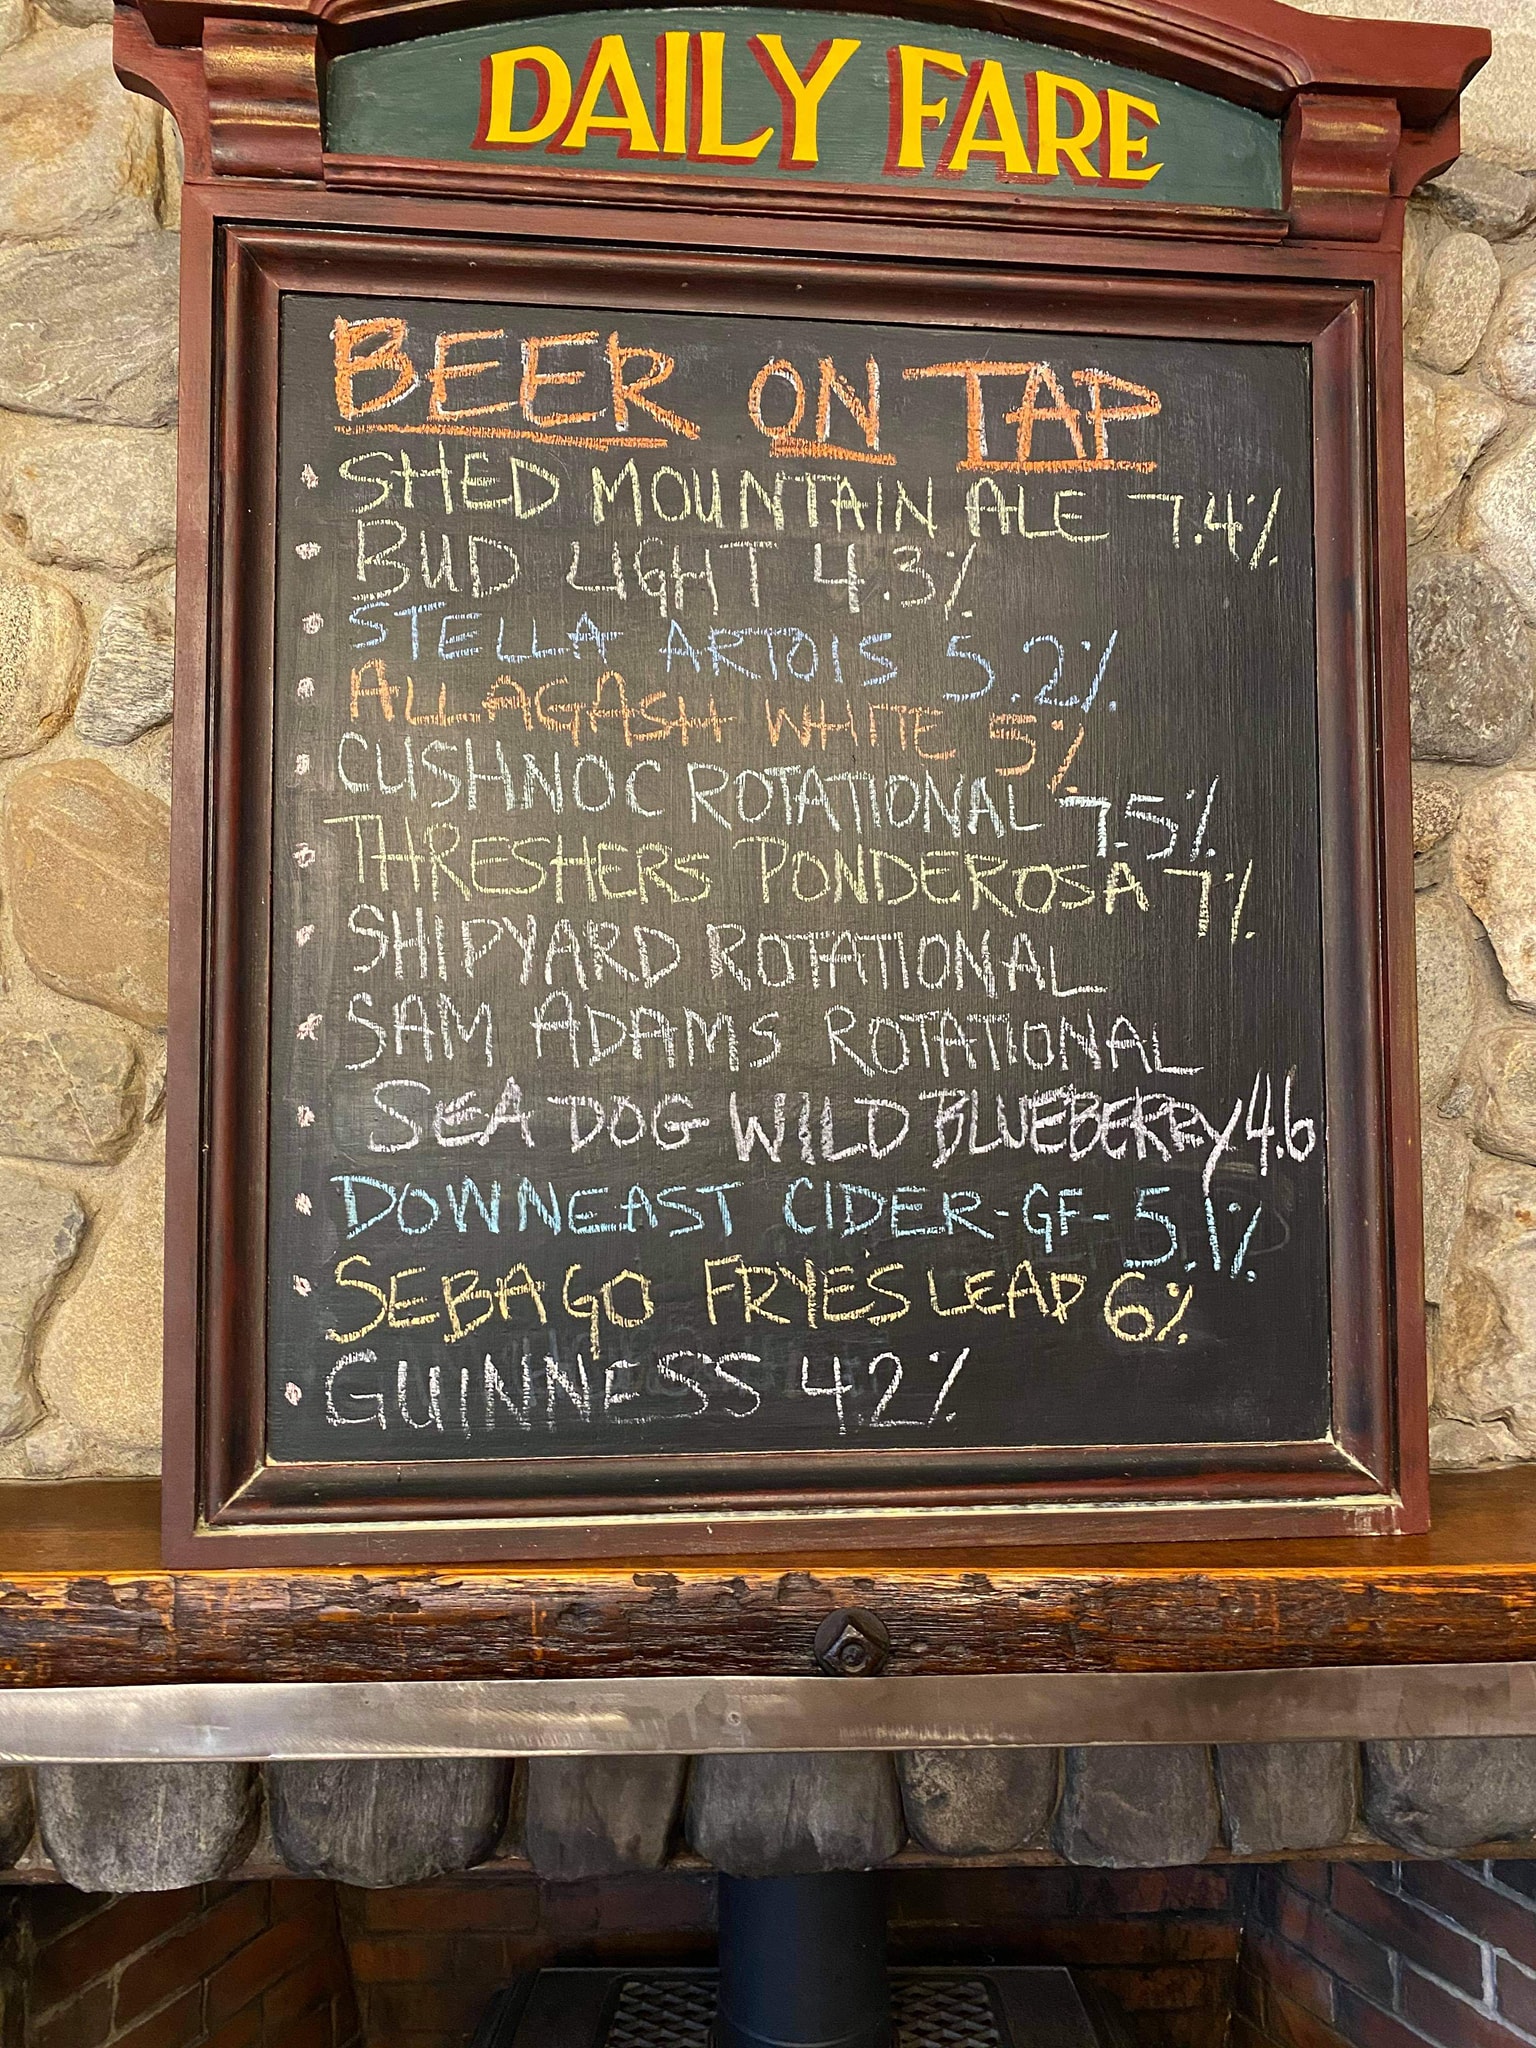 DAILY FARE
BEER ON TAP
• SHED MOUNTAIN ALE 7.4%
• BUD LIGHT 4.3%
• STELLA ARTOIS 5.2%
• ALLAGASH WHITE 5%
• CUSHNOC ROTATIONAL 7.5%
• THRESHERS PONDEROSA 7%
• SHIPYARD ROTATIONAL
• SAM ADAMS ROTATIONAL
• SEA DOG WILD BLUEBERRY 4.6
• DOWNEAST CIDER-GF- 5.1%
• SEBAGO FRYE'S LEAP 6%
• GUINNESS 4.2%